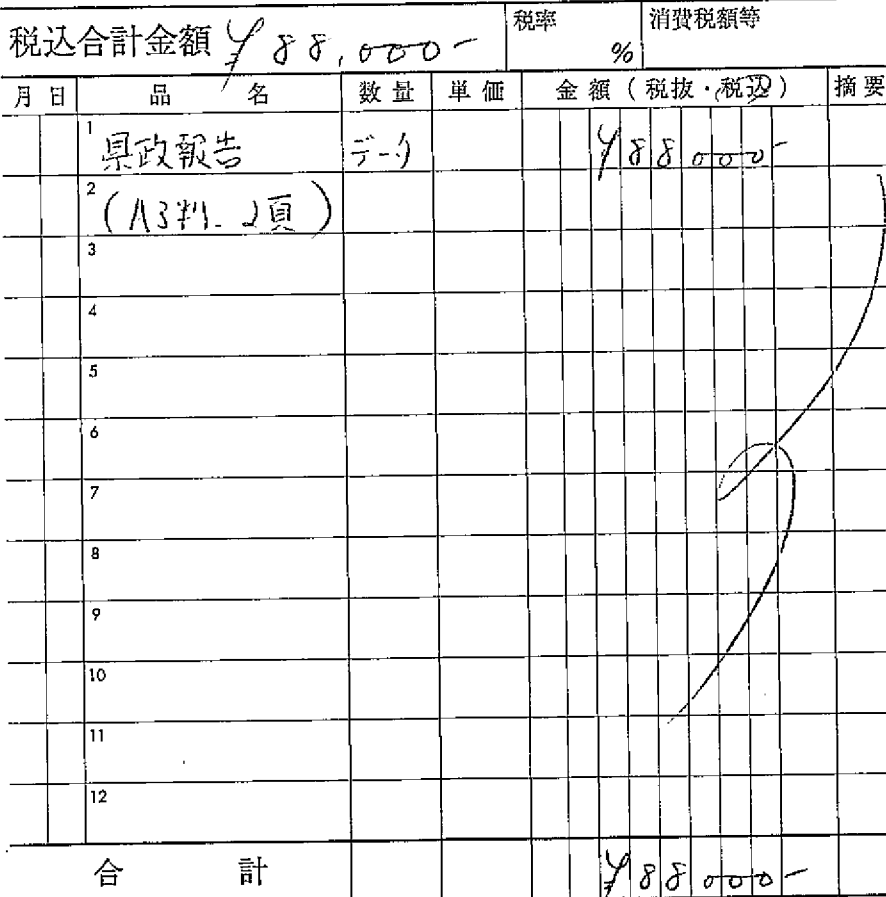 税込合計金額 ¥88,000- 税率 % 消費税額等
月 日 品 名 数量 単価 金額(税抜・税込) 摘要
1 県政報告 データ ¥88000-
2 (A3判. 2頁)
3
4
5
6
7
8
9
10
11
12
合 計 ¥88000-